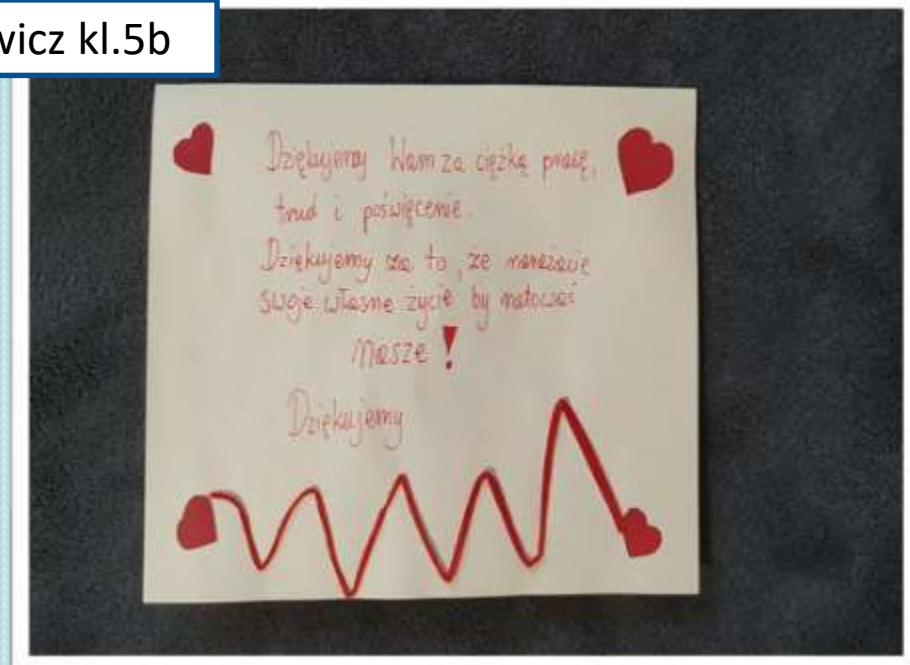 wicz kl.5b
Dziękujemy Wam za ciężką pracę,
trud i poświęcenie.
Dziękujemy za to, że narażacie
swoje własne życie by ratować
nasze!
Dziękujemy